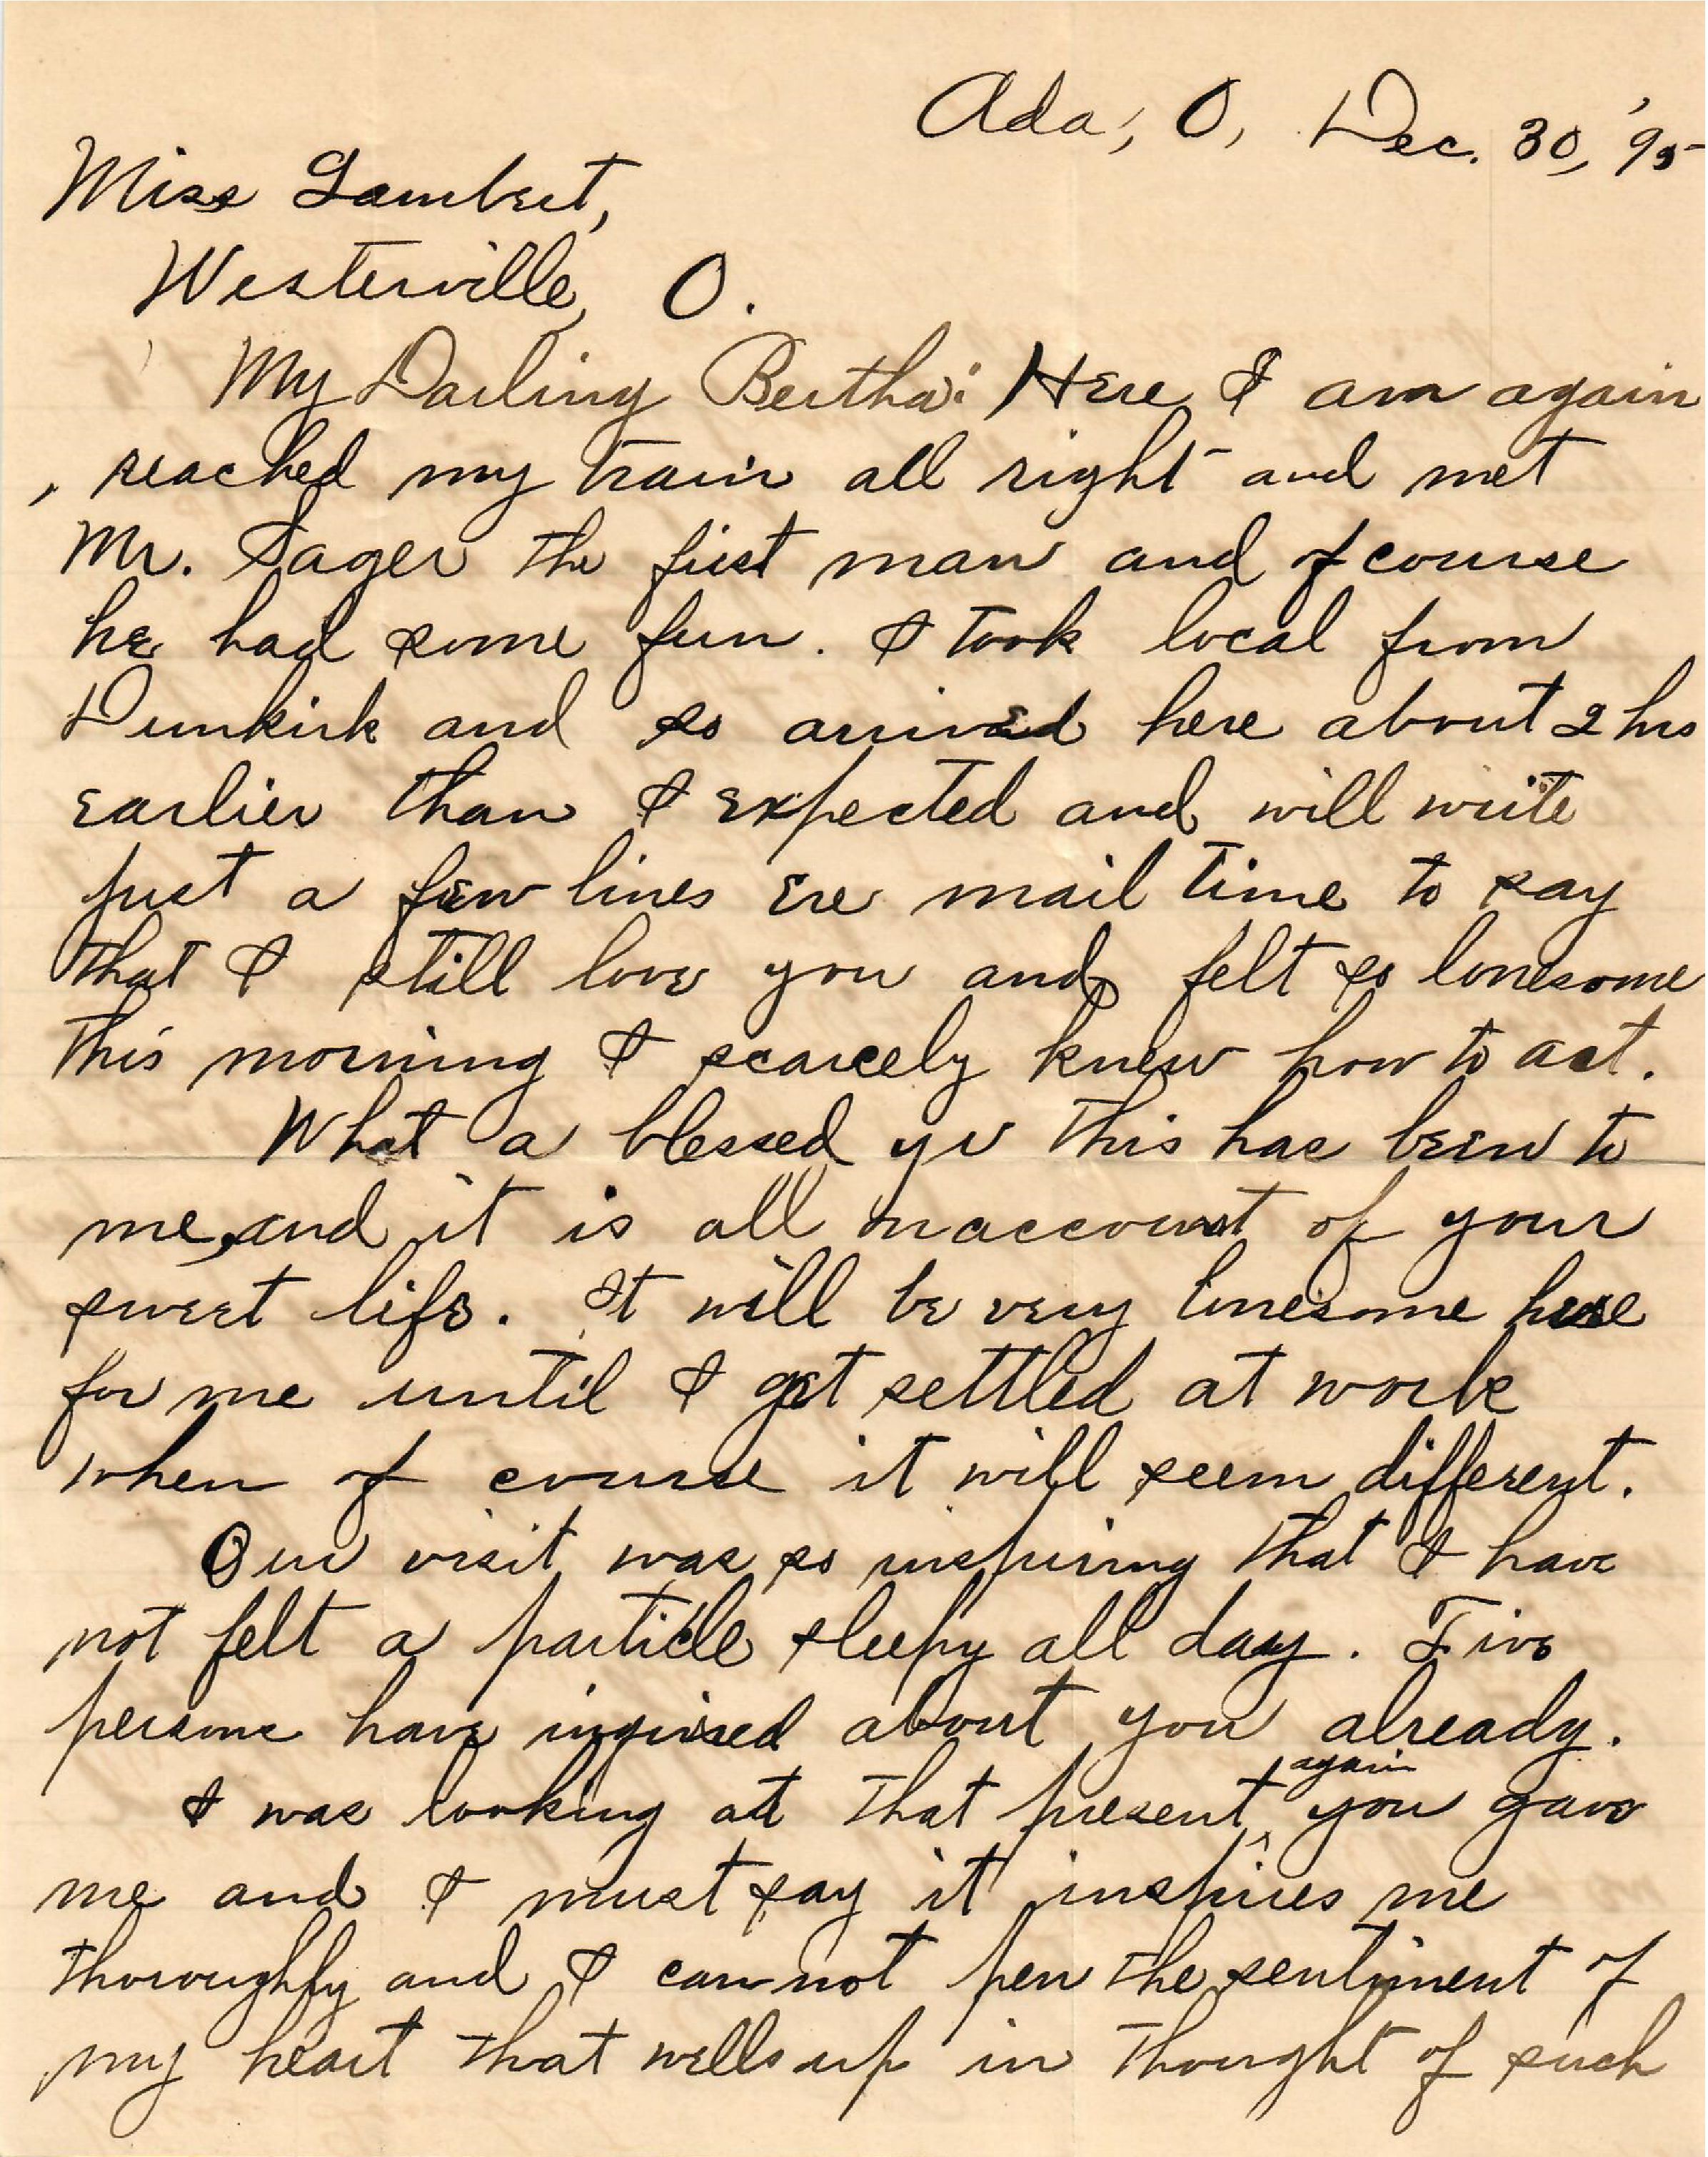 Ada, O, Dec. 30, '95
Miss Lambert,
Westerville, O.
My Darling Bertha: Here I am again
, reached my train all right and met
Mr. Sager the first man and of course
he had some fun. I took local from
Dunkirk and so arrived here about 2 hrs
earlier than I expected and will write
just a few lines ere mail time to say
that I still love you and felt so lonesome
this morning I scarcely knew how to act.
What a blessed yr this has been to
me, and it is all on account of your
sweet life. It will be very lonesome here
for me until I get settled at work
when of course it will seem different.
Our visit was so inspiring that I have
not felt a particle sleepy all day. Five
persons have inquired about you already.
I was looking at that present again you gave
me and I must say it inspires me
thoroughly and I can not pen the sentiment of
my heart that wells up in thought of such